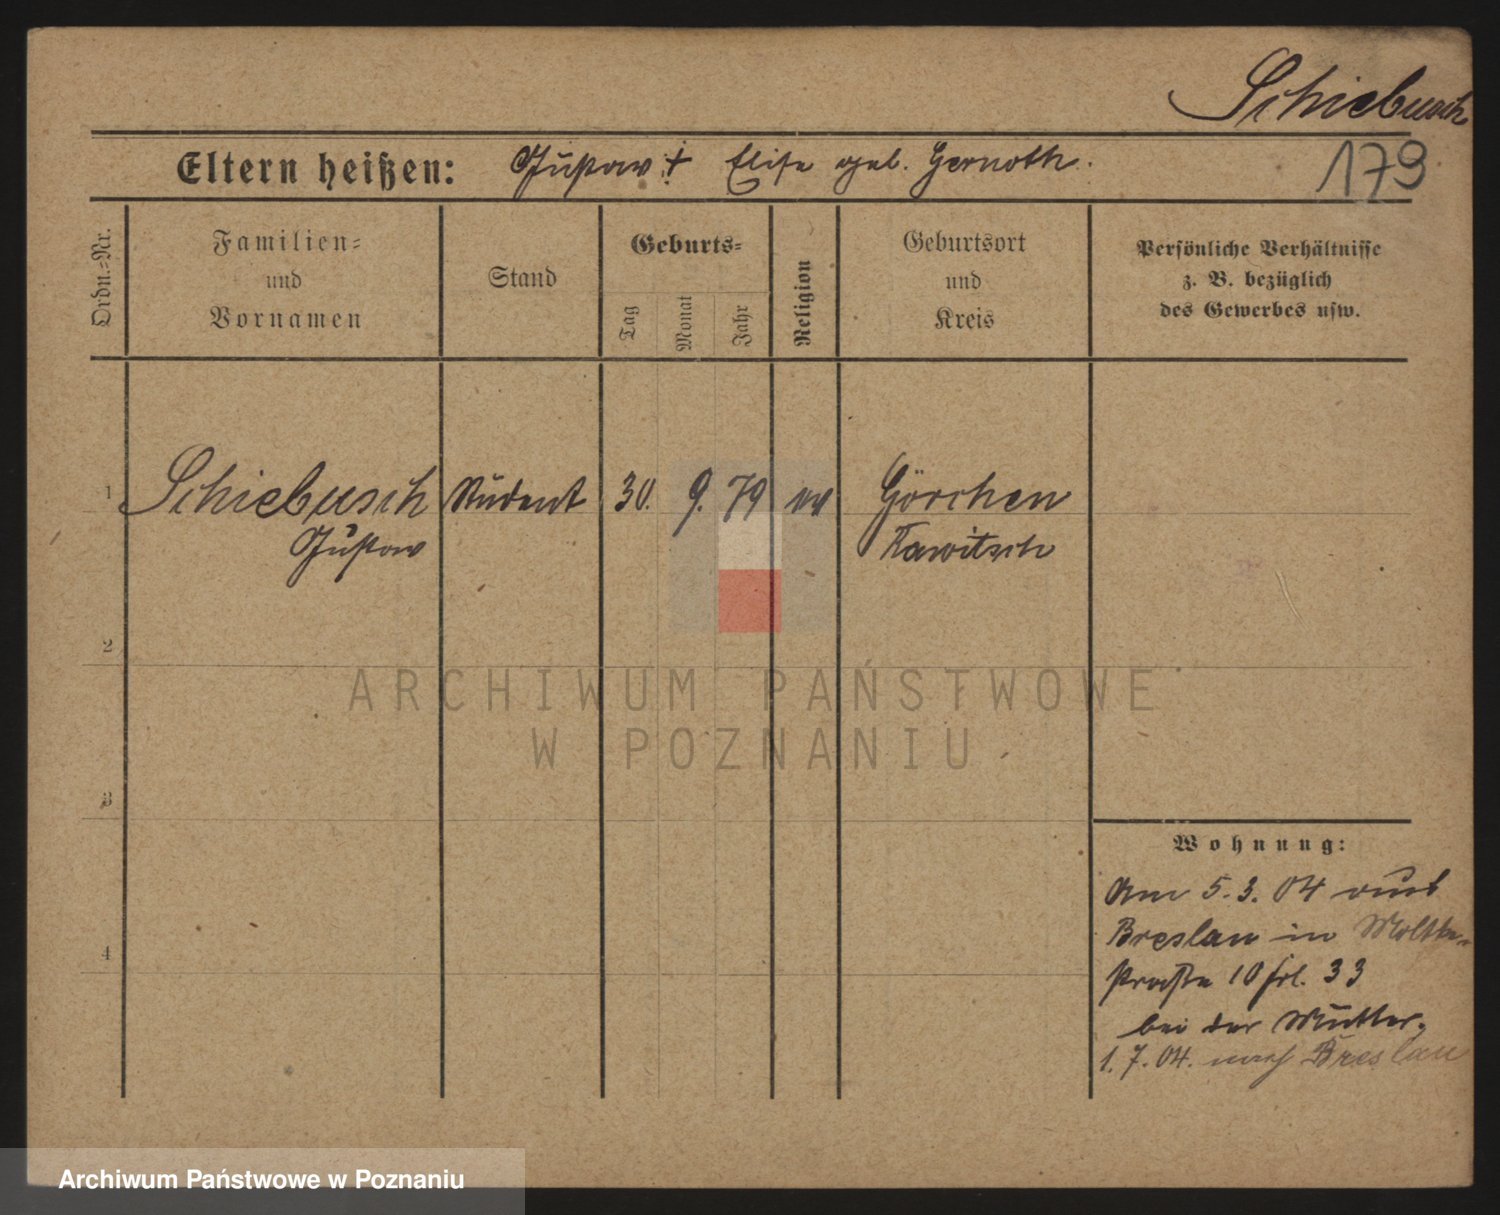 Schiebusch
Eltern heißen: Gustav † Elise geb. Gernoth.
179
Ordn.-Nr.
Familien-
und
Vornamen
Stand
Geburts-
Tag
Monat
Jahr
Religion
Geburtsort
und
Kreis
Persönliche Verhältnisse
z. B. bezüglich
des Gewerbes usw.
1 Schiebusch Student 30. 9. 79 ev Görchen
Gustav Rawitsch
2
3
4
Wohnung:
Am 5.3.04 aus
Breslau in Moltke-
straße 10 frl. 33
bei der Mutter.
1.7.04. nach Breslau
ARCHIWUM PAŃSTWOWE
W POZNANIU
Archiwum Państwowe w Poznaniu